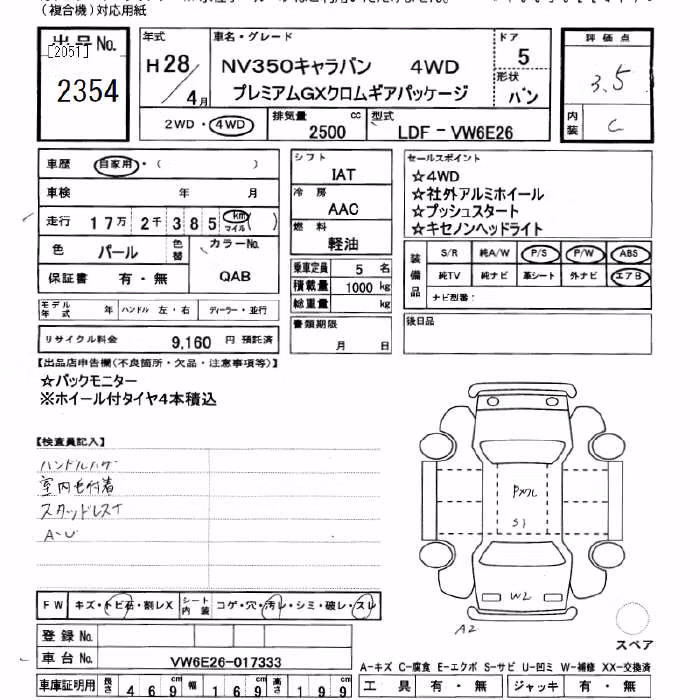 (複合機)対応用紙
出品No.
[2051]
2354
年式
H28/4月
車名・グレード
NV350キャラバン 4WD
プレミアムGXクロムギアパッケージ
ドア
5
形状
バン
評価点
3.5
内装
C
2WD・4WD
排気量 cc
2500
型式
LDF-VW6E26
車歴 自家用・( )
車検 年 月
走行 17万 2千 385 km マイル ( )
色 パール
色替
カラーNo.
QAB
保証書 有・無
モデル年式 年 ハンドル 左・右 ディーラー・並行
リサイクル料金 9,160 円 預託済
シフト
IAT
冷房
AAC
燃料
軽油
乗車定員 5 名
積載量 1000 kg
総重量 kg
書類期限
月 日
セールスポイント
☆4WD
☆社外アルミホイール
☆プッシュスタート
☆キセノンヘッドライト
装備品
S/R 純A/W P/S P/W ABS
純TV 純ナビ 革シート 外ナビ エアB
ナビ型番:
後日品
【出品店申告欄(不良箇所・欠品・注意事項等)】
☆バックモニター
※ホイール付タイヤ4本積込
【検査員記入】
ハンドルハゲ
室内毛付着
スタッドレスT
A-U
FW キズ・トビ石・割レX シート内装 コゲ・穴・汚レ・シミ・破レ・スレ
登録No.
車台No. VW6E26-017333
車庫証明用 長さ 469 cm 幅 169 cm 高さ 199 cm
S1
W2
A2
スペア
A-キズ C-腐食 E-エクボ S-サビ U-凹ミ W-補修 XX-交換済
工具 有・無 ジャッキ 有・無